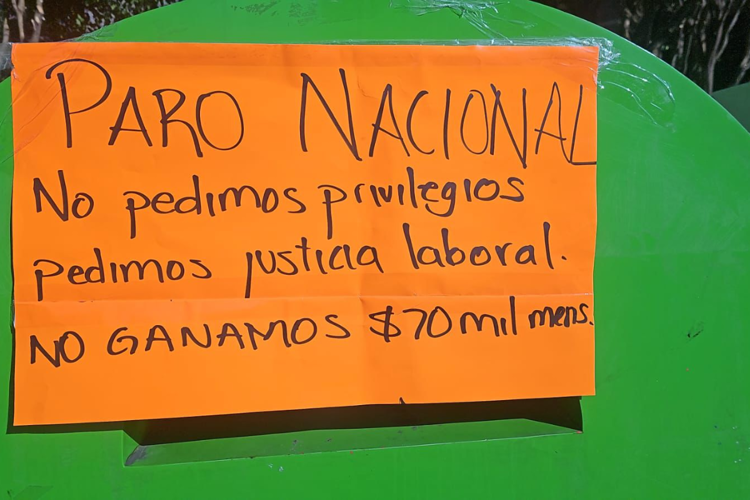 PARO NACIONAL
No pedimos privilegios
pedimos justicia laboral.
NO GANAMOS $70 mil mens.